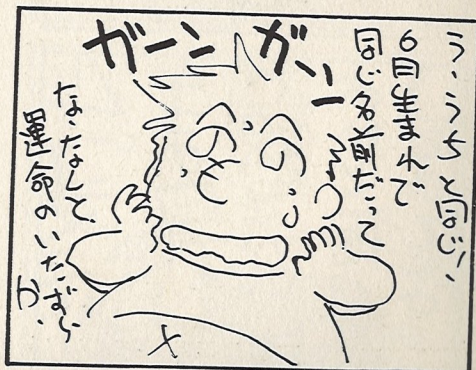 う・うちと同じ!
6月生まれで
同じ名前だって
ガーン
ガーン
な・なんと、
運命のいたずら
か、